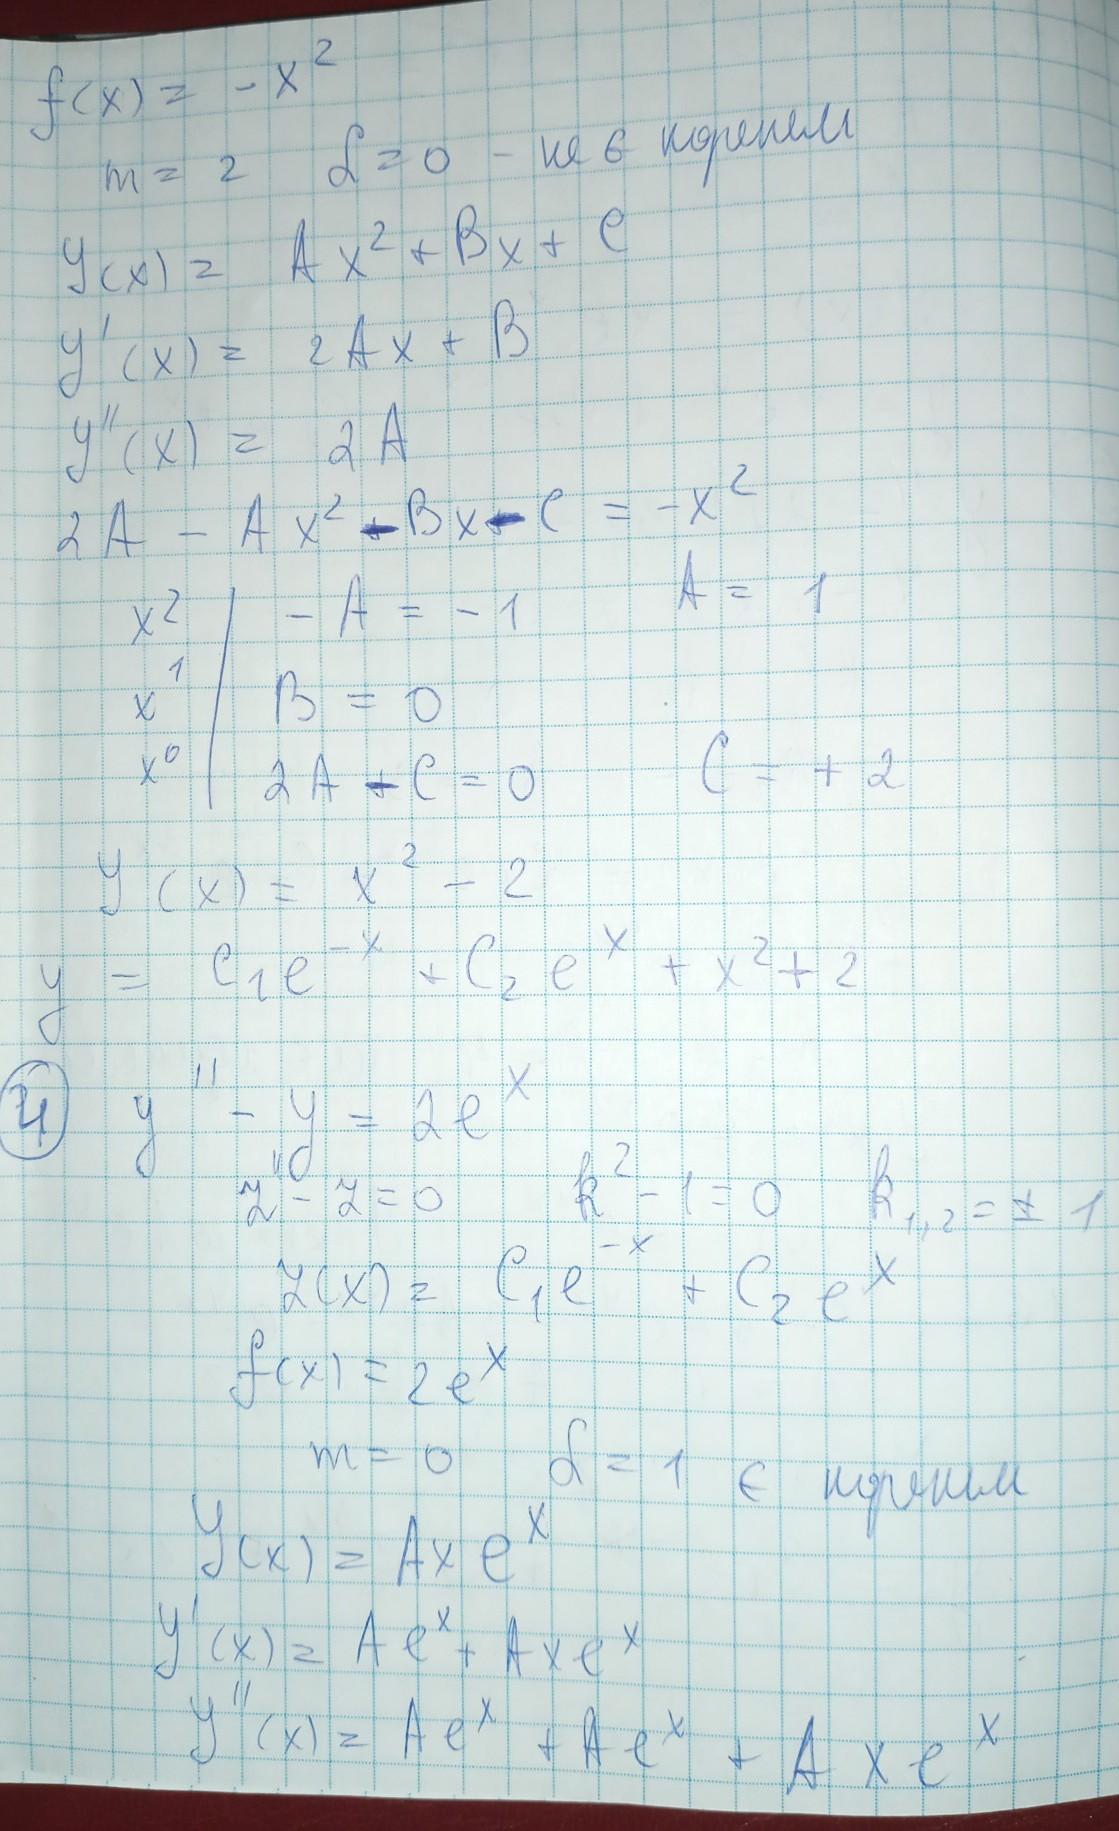 f(x) = -x²
m = 2 α = 0 - не є коренем
Y(x) = Ax² + Bx + C
Y'(x) = 2Ax + B
Y''(x) = 2A
2A - Ax² - Bx - C = -x²
x² | -A = -1 A = 1
x¹ | B = 0
x⁰ | 2A - C = 0 C = +2
Y(x) = x² - 2
y = C₁e⁻ˣ + C₂eˣ + x² + 2
④ y'' - y = 2eˣ
z'' - z = 0 k² - 1 = 0 k₁,₂ = ± 1
z(x) = C₁e⁻ˣ + C₂eˣ
f(x) = 2eˣ
m = 0 α = 1 є коренем
Y(x) = Axeˣ
Y'(x) = Aeˣ + Axeˣ
Y''(x) = Aeˣ + Aeˣ + Axeˣ